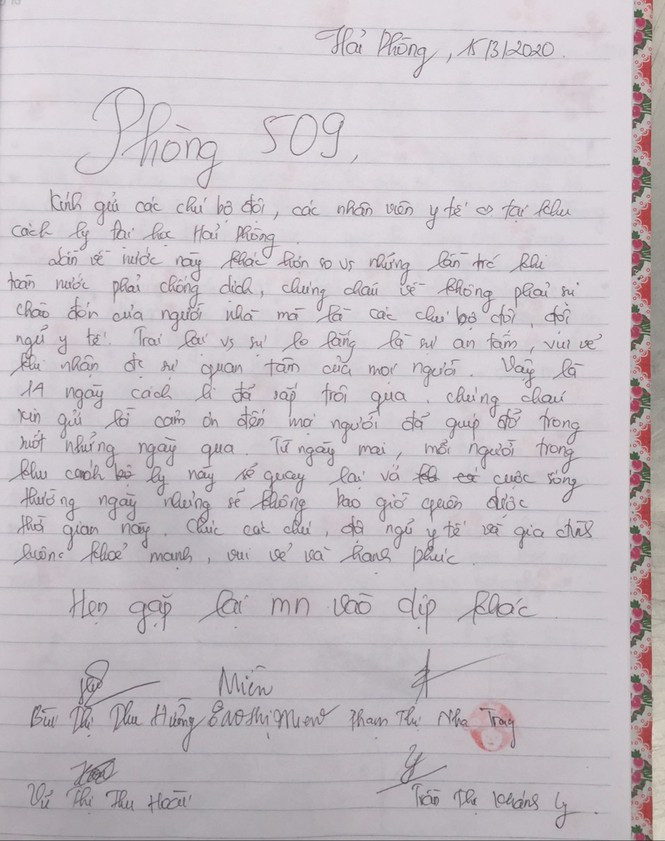 Hải Phòng, 15/3/2020.
Phòng 509,
Kính gửi các chú bộ đội, các nhân viên y tế tại khu
cách ly tại học Hải Phòng.
Lần về nước này khác hơn so vs những lần trc khi
toàn nước phải chống dịch, chúng cháu về không phải sự
chào đón của người nhà mà là các chú bộ đội, đội
ngũ y tế. Trái lại vs sự lo lắng là sự an tâm, vui vẻ
khi nhận đc sự quan tâm của mọi người. Vậy là
14 ngày cách li đã sắp trôi qua. chúng cháu
xin gửi lời cảm ơn đến mọi người đã giúp đỡ trong
suốt những ngày qua. Từ ngày mai, mỗi người trong
khu cách ly này sẽ quay lại về cuộc sống
thường ngày nhưng sẽ không bao giờ quên được
thời gian này. Chúc các chú, đội ngũ y tế và gia đình
luôn khoẻ mạnh, vui vẻ và hạnh phúc.
Hẹn gặp lại mn vào dịp khác
Miền
Bùi Thị Thu Hường Cao Thị Miền Phạm Thị Nha Trang
Vũ Thị Thu Hoài Trần Thị Khánh Ly.